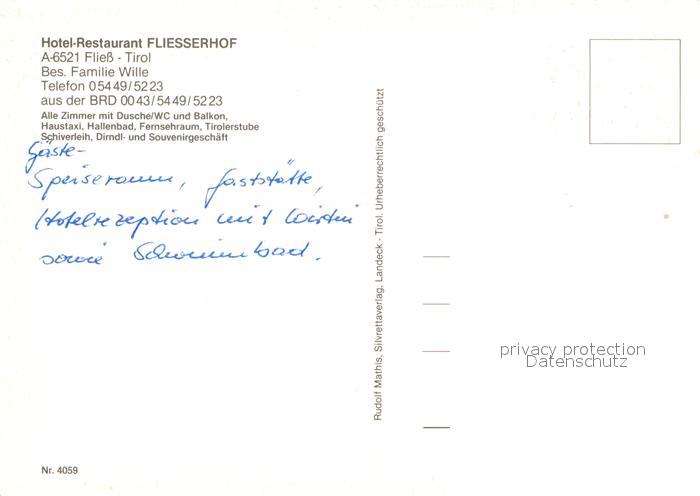 Hotel-Restaurant FLIESSERHOF
A-6521 Fließ - Tirol
Bes. Familie Wille
Telefon 05449/5223
aus der BRD 0043/5449/5223
Alle Zimmer mit Dusche/WC und Balkon,
Haustaxi, Hallenbad, Fernsehraum, Tirolerstube
Schiverleih, Dirndl- und Souvenirgeschäft
Gäste-
Speiseraum, Gaststätte,
Hotelrezeption mit Wirtin
sowie Schwimmbad.
Rudolf Mathis, Silvrettaverlag, Landeck - Tirol. Urheberrechtlich geschützt
privacy protection
Datenschutz
Nr. 4059